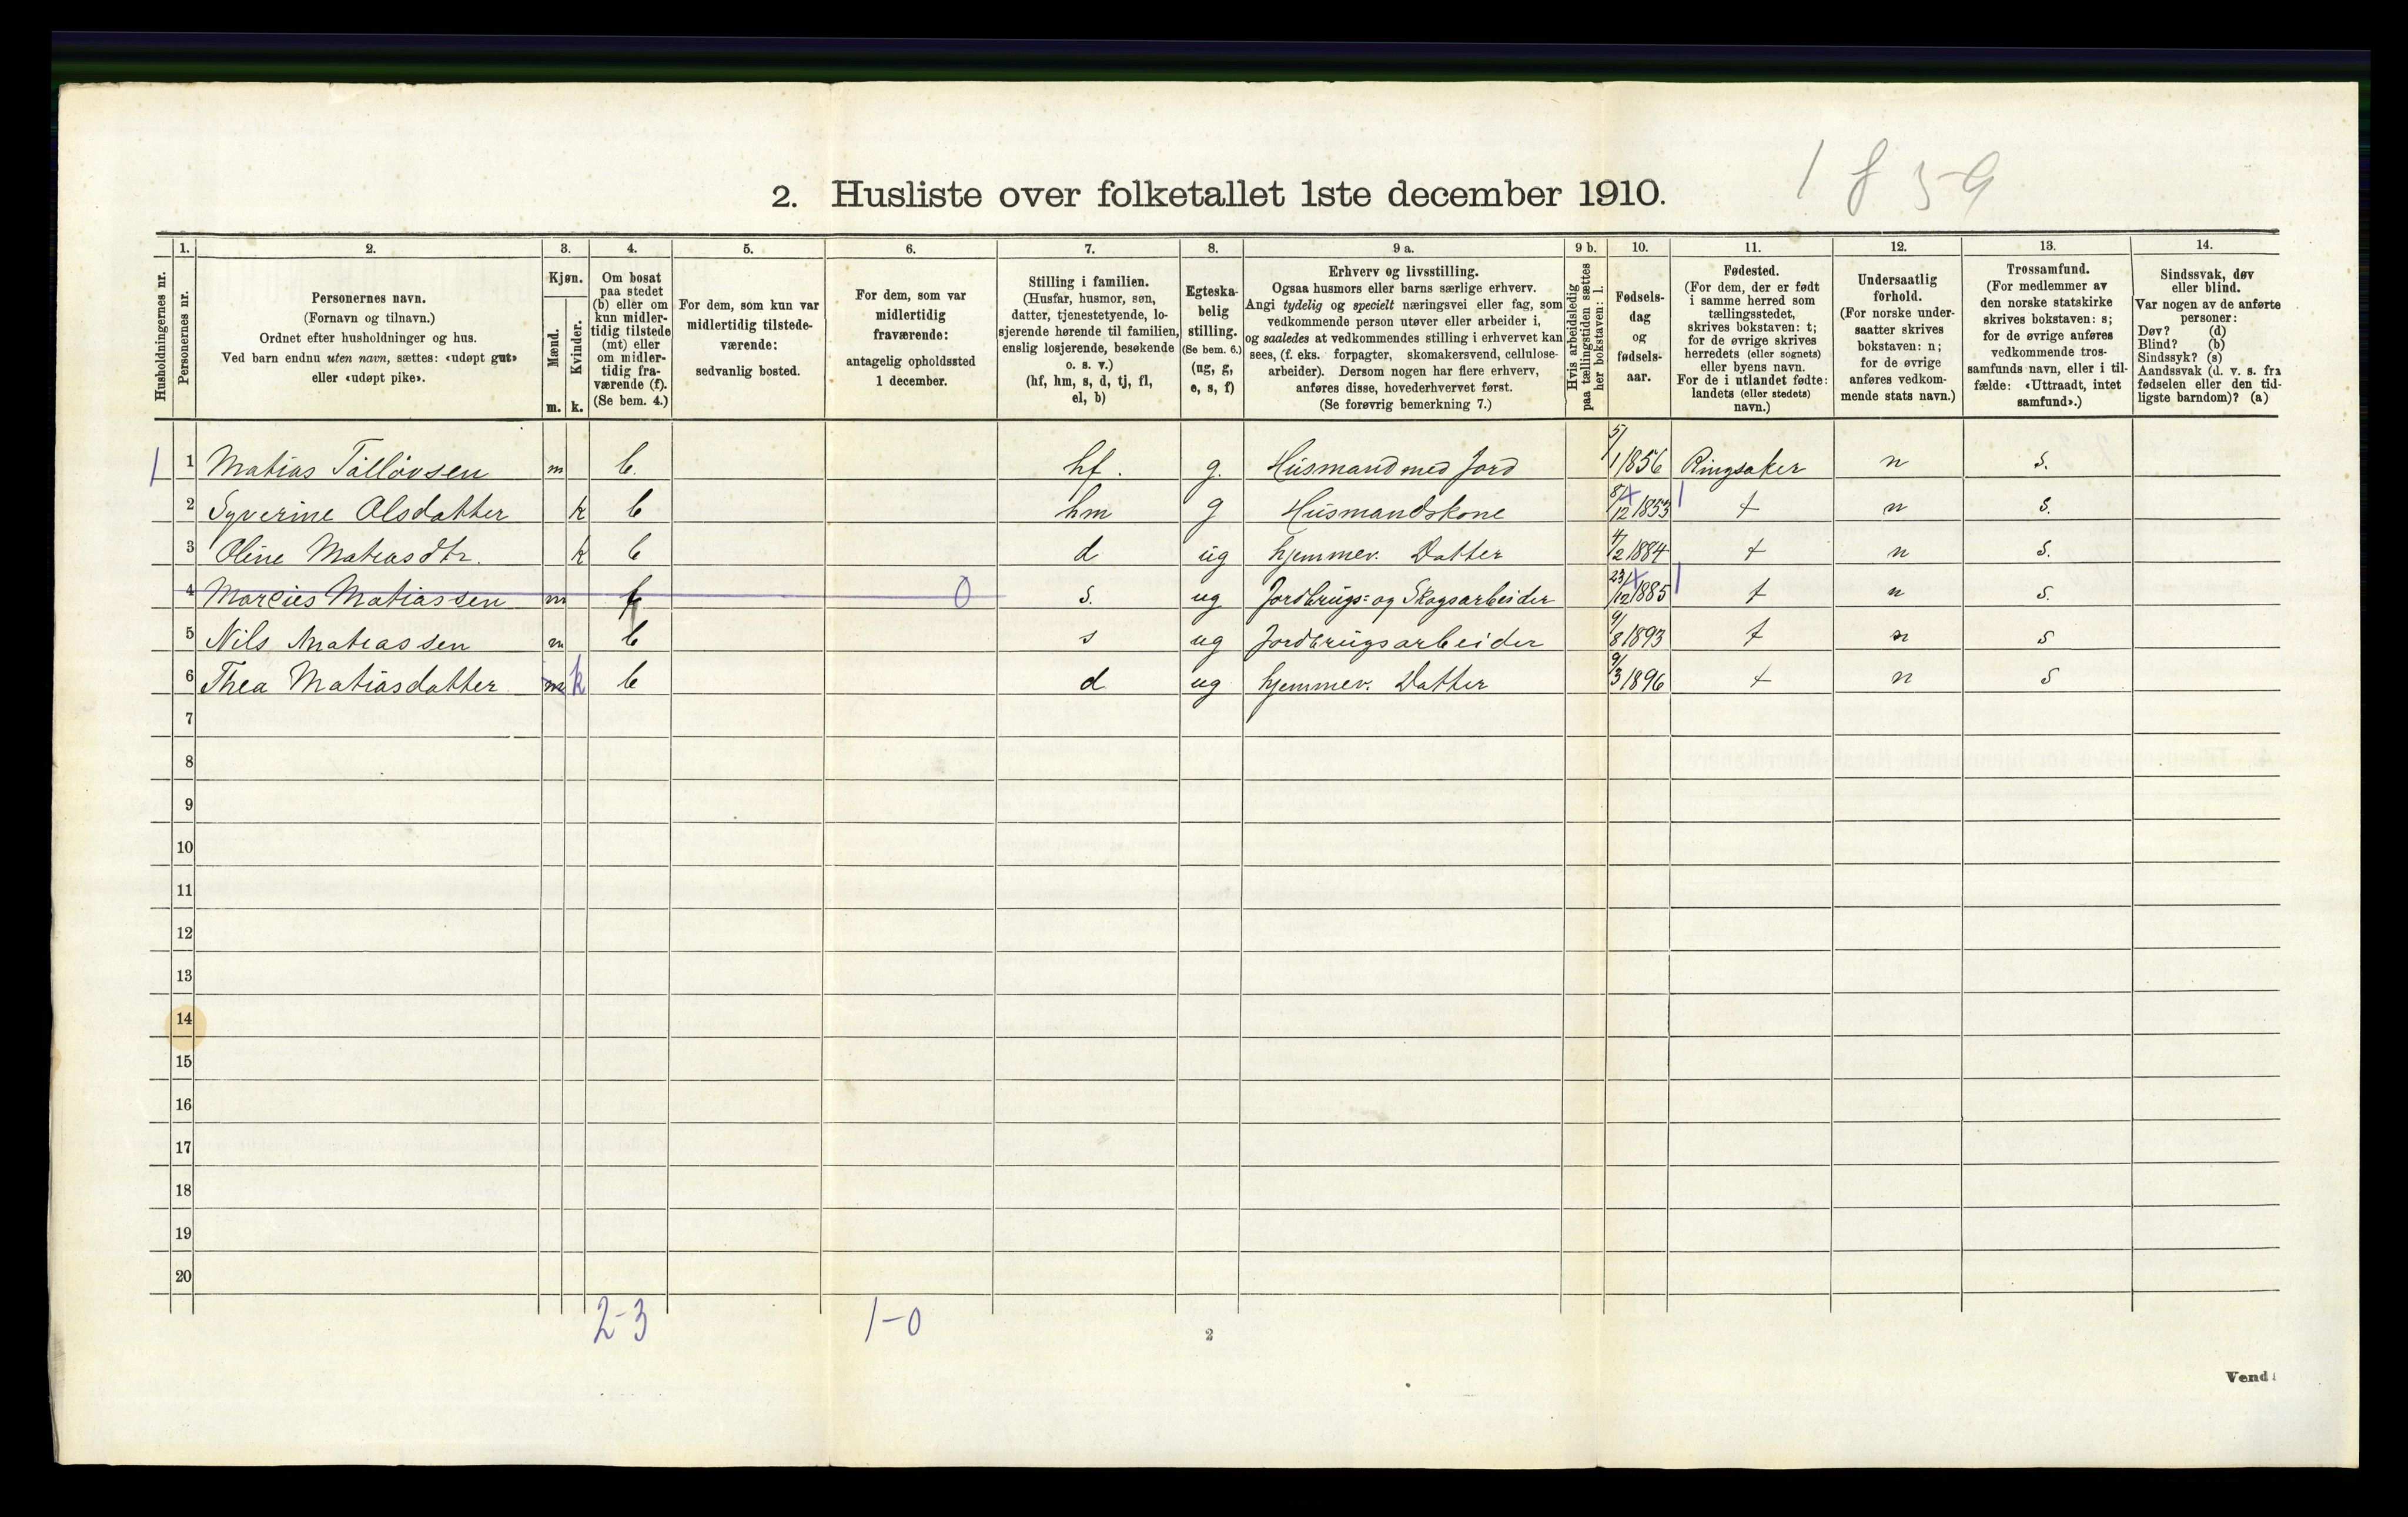 1859
2. Husliste over folketallet 1ste december 1910.
Husholdningernes nr.
1. Personernes nr.
2. Personernes navn.
(Fornavn og tilnavn.)
Ordnet efter husholdninger og hus.
Ved barn endnu uten navn, sættes: «udøpt gut»
eller «udøpt pike».
3. Kjøn.
Mænd. m.
Kvinder. k.
4. Om bosat
paa stedet
(b) eller om
kun midler-
tidig tilstede
(mt) eller
om midler-
tidig fra-
værende (f).
(Se bem. 4.)
5. For dem, som kun var
midlertidig tilstede-
værende:
sedvanlig bosted.
6. For dem, som var
midlertidig
fraværende:
antagelig opholdssted
1 december.
7. Stilling i familien.
(Husfar, husmor, søn,
datter, tjenestetyende, lo-
sjerende hørende til familien,
enslig losjerende, besøkende
o. s. v.)
(hf, hm, s, d, tj, fl,
el, b)
8. Egteska-
belig
stilling.
(Se bem. 6.)
(ug, g,
e, s, f)
9 a. Erhverv og livsstilling.
Ogsaa husmors eller barns særlige erhverv.
Angi tydelig og specielt næringsvei eller fag, som
vedkommende person utøver eller arbeider i,
og saaledes at vedkommendes stilling i erhvervet kan
sees, (f. eks. forpagter, skomakersvend, cellulose-
arbeider). Dersom nogen har flere erhverv,
anføres disse, hovederhvervet først.
(Se forøvrig bemerkning 7.)
9 b. Hvis arbeidsledig
paa tællingstiden sættes
her bokstaven: l.
10. Fødsels-
dag
og
fødsels-
aar.
11. Fødested.
(For dem, der er født
i samme herred som
tællingsstedet,
skrives bokstaven: t;
for de øvrige skrives
herredets (eller sognets)
eller byens navn.
For de i utlandet fødte:
landets (eller stedets)
navn.)
12. Undersaatlig
forhold.
(For norske under-
saatter skrives
bokstaven: n;
for de øvrige
anføres vedkom-
mende stats navn.)
13. Trossamfund.
(For medlemmer av
den norske statskirke
skrives bokstaven: s;
for de øvrige anføres
vedkommende tros-
samfunds navn, eller i til-
fælde: «Uttraadt, intet
samfund».)
14. Sindssvak, døv
eller blind.
Var nogen av de anførte
personer:
Døv? (d)
Blind? (b)
Sindssyk? (s)
Aandssvak (d. v. s. fra
fødselen eller den tid-
ligste barndom)? (a)
1 1 Matias Tølløvsen m b. hf. g. Husmand med Jord 5/1 1856 Ringsaker n s.
2 Syverine Olsdatter k b hm g Husmandskone 8/12 1853 t n s.
3 Oline Matiasdtr. k b d ug hjemmev. Datter 4/2 1884 t n s.
4 Marcius Matiassen m f 0 s. ug Jordbrugs= og Skogsarbeider 23/12 1885 t n s.
5 Nils Matiassen m b s ug Jordbrugsarbeider 9/8 1893 t n s
6 Thea Matiasdatter m k b d ug hjemmev. Datter 9/3 1896 t n s
7
8
9
10
11
12
13
14
15
16
17
18
19
20
2-3 1-0
2
Vend!